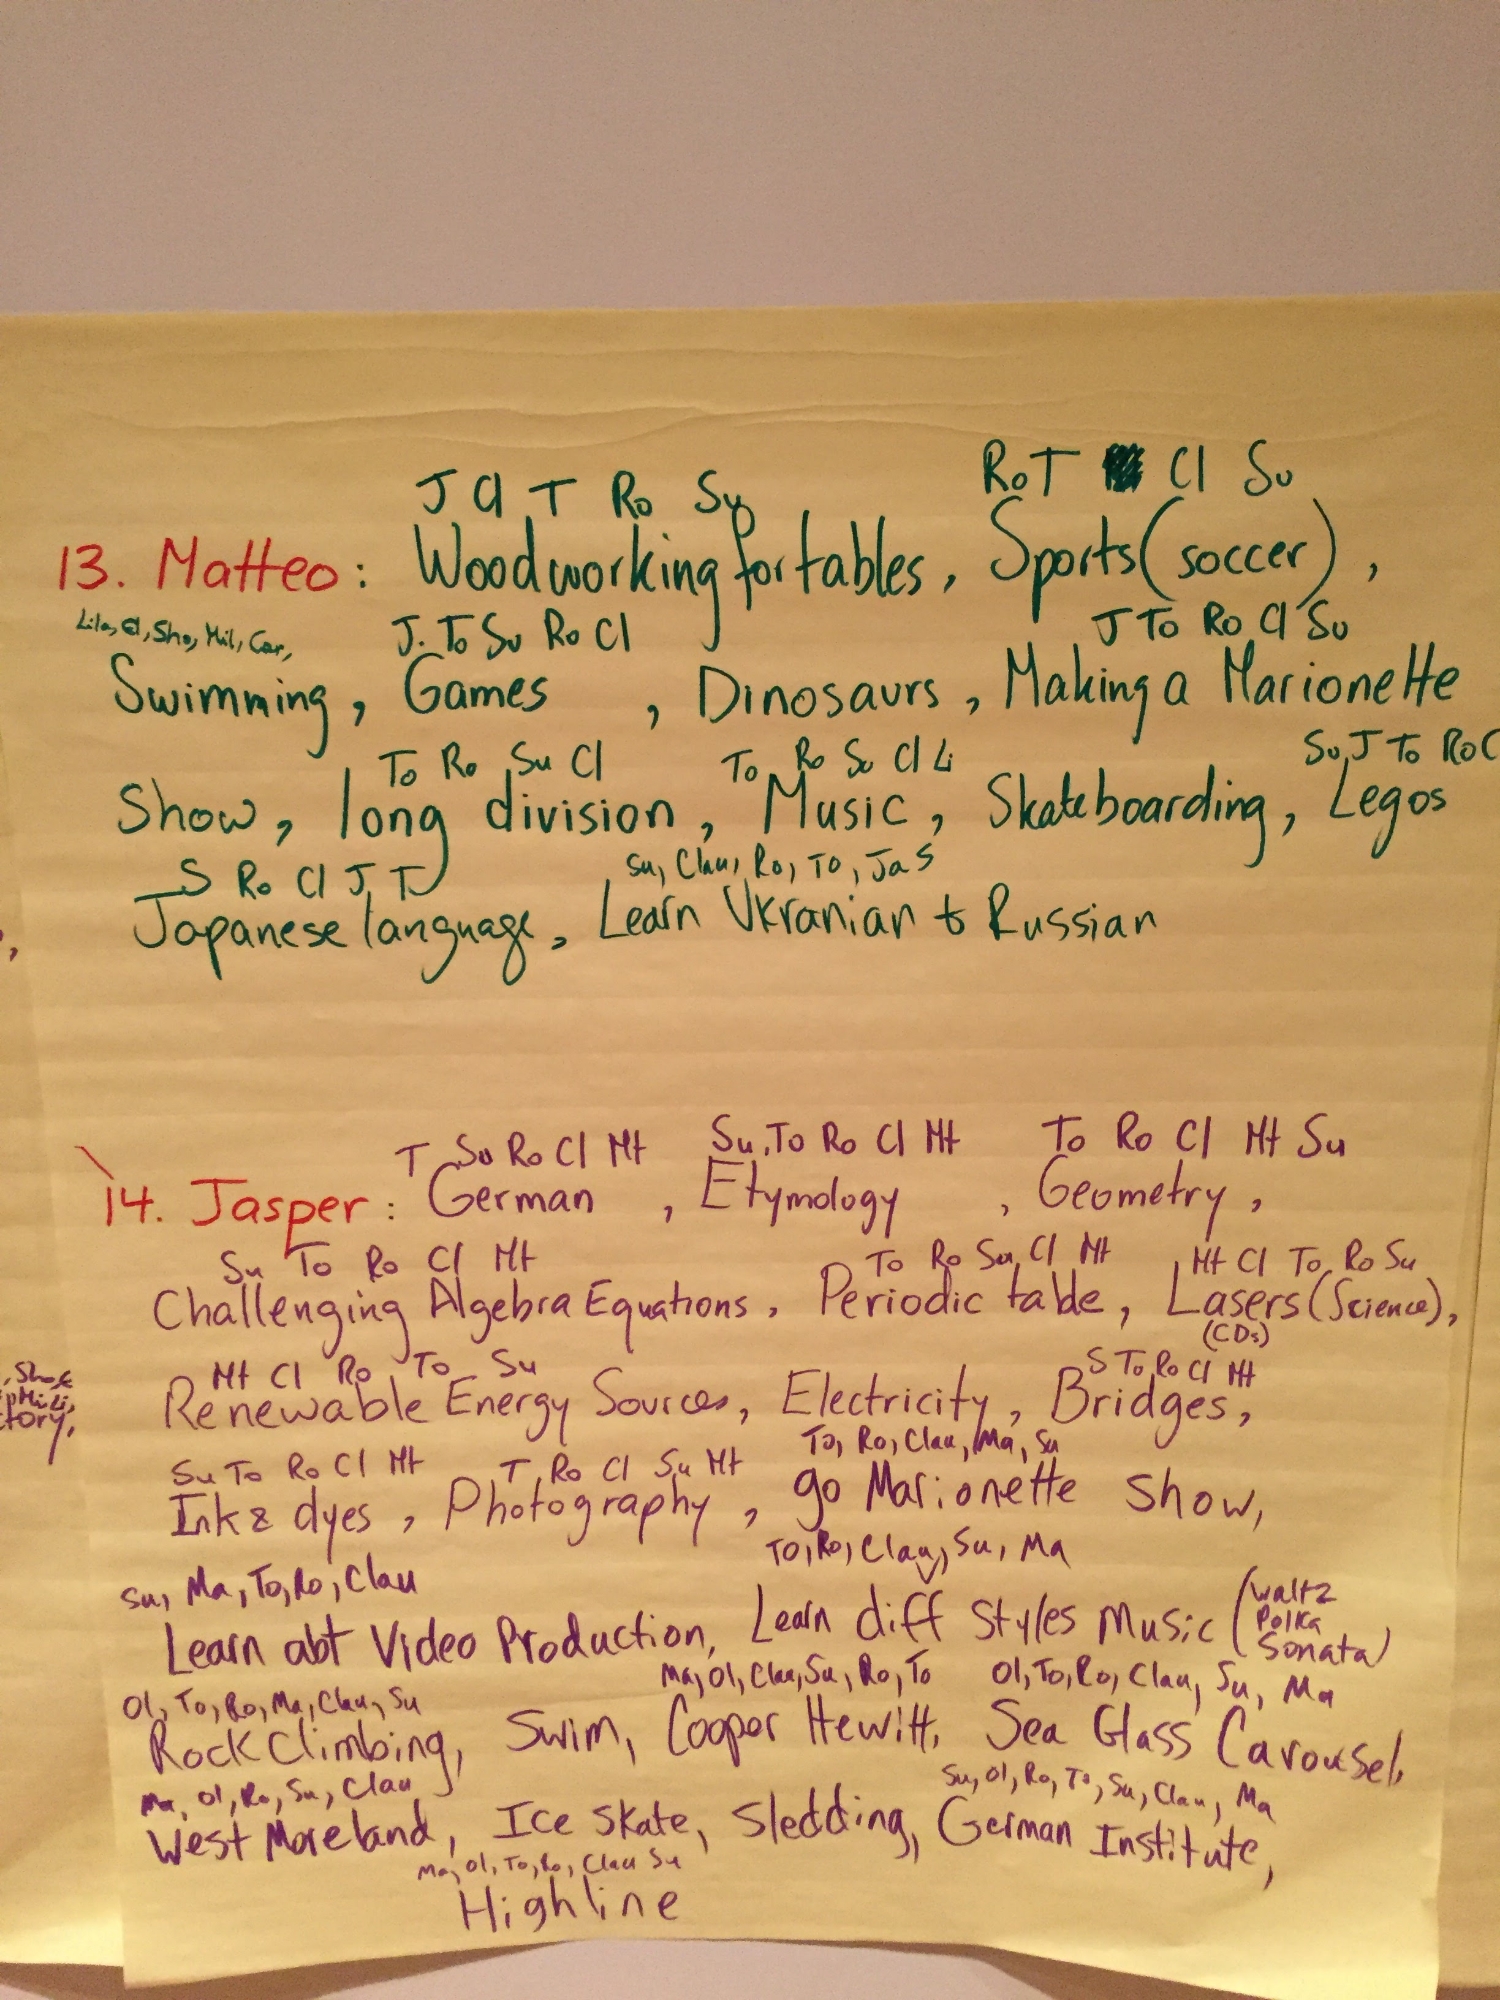 RoT Cl Su
J Cl T Ro Su
13. Matteo: Woodworking for tables, Sports (soccer),
Lila, El, Sho, Mil, Car, J. To Su Ro Cl J To Ro Cl Su
Swimming, Games , Dinosaurs, Making a Marionette
To Ro Su Cl To Ro Su Cl Li Su J To Ro C
Show, long division, Music, Skateboarding, Legos
S Ro Cl J T Su, Clau, Ro, To, Jas
Japanese language, Learn Ukranian & Russian
T Su Ro Cl Mt Su, To Ro Cl Mt To Ro Cl Mt Su
14. Jasper: German , Etymology , Geometry,
Su To Ro Cl Mt To Ro Su Cl Mt Mt Cl To Ro Su
Challenging Algebra Equations, Periodic table, Lasers (Science),
(CDs)
Mt Cl Ro To Su S To Ro Cl Mt
Renewable Energy Sources, Electricity, Bridges,
tory,
Su To Ro Cl Mt T Ro Cl Su Mt To, Ro, Clau, Ma, Su
Ink & dyes, Photography, go Marionette Show,
Su, Ma, To, Ro, Clau To, Ro, Clau, Su, Ma
Learn abt Video Production, Learn diff Styles Music (waltz
Polka
Sonata)
Ol, To, Ro, Ma, Clau, Su Ma, Ol, Clau, Su, Ro, To Ol, To, Ro, Clau, Su, Ma
Rock Climbing, Swim, Cooper Hewitt, Sea Glass Carousel,
Ma, Ol, Ro, Su, Clau Su, Ol, Ro, To, Su, Clau, Ma
West Moreland, Ice Skate, Sledding, German Institute,
Ma, Ol, To, Ro, Clau Su
Highline